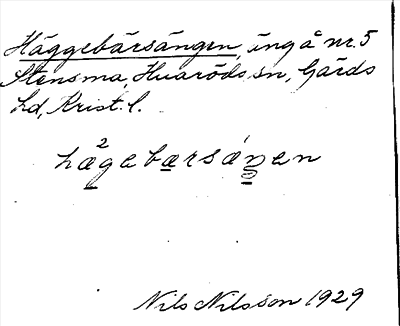 Häggebärsängen, äng å nr. 5
Stensma, Huaröds sn, Gärds
hd, Krist. l.
hæ²gebærsáŋen
Nils Nilsson 1929